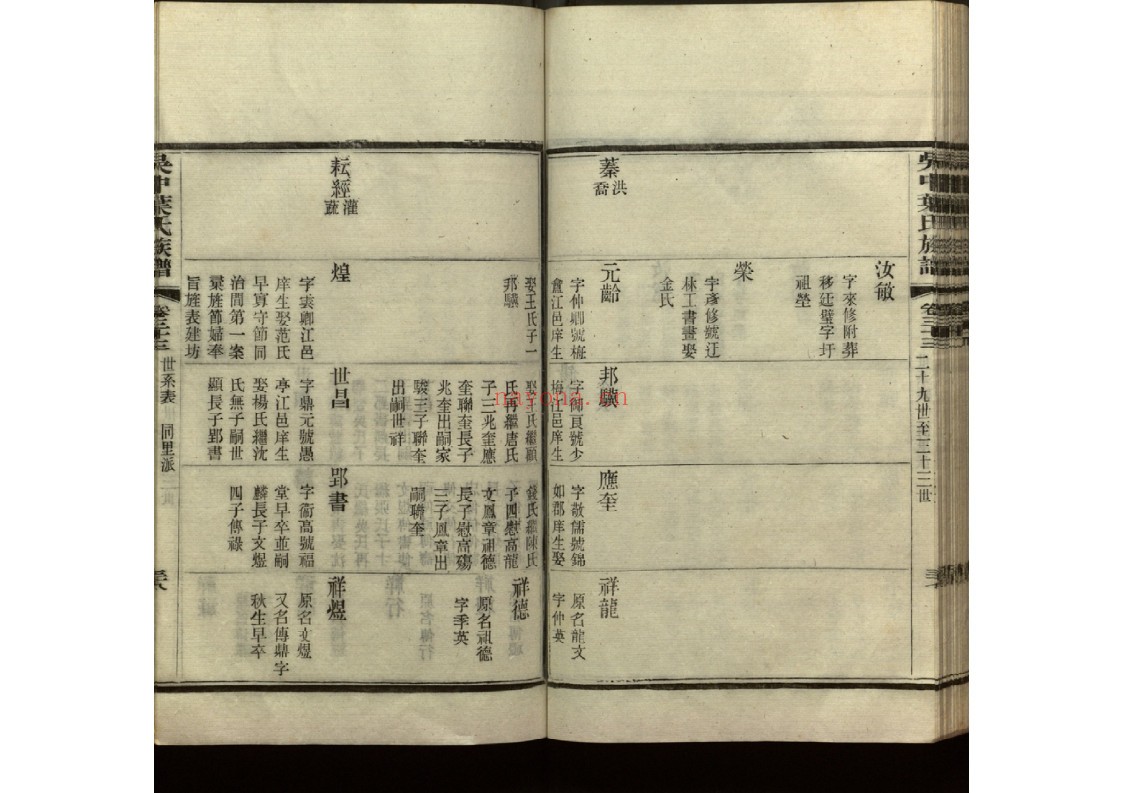 吳中葉氏族譜
卷三十三
二十九世至三十三世
汝敏
字來修附葬
移廷璧字圩
祖塋
榮
字彥修號迂
林工書畫娶
金氏
蓁
洪
喬
元齡
字仲卿號梅
盦江邑庠生
邦驥
字御良號少
梅江邑庠生
應奎
字敬儒號錦
如郡庠生娶
祥龍
原名龍文
字仲英
娶王氏子一
邦驥
娶王氏繼顧
氏再繼唐氏
子三兆奎應
奎聯奎長子
兆奎出嗣家
駿三子聯奎
出嗣世祥
錢氏繼陳氏
子四慰高龍
文鳳章祖德
長子慰高殤
三子鳳章出
嗣聯奎
祥德
原名祖德
字季英
耘經
灌
蔬
煌
字雲卿江邑
庠生娶范氏
早寡守節同
治間第一案
彙旌節婦奉
旨旌表建坊
世昌
字鼎元號愚
亭江邑庠生
娶楊氏繼沈
氏無子嗣世
顯長子郢書
郢書
字衞高號福
堂早卒並嗣
麟長子文煜
四子傳祿
祥煜
原名文煜
又名傳鼎字
秋生早卒
吳中葉氏族譜
卷三十三
世系表
同里派
nayona.cn